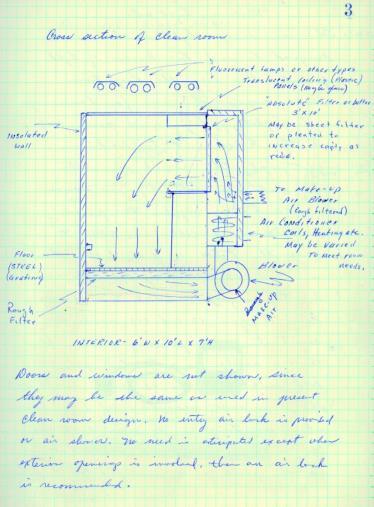 3
Cross section of clean room
Fluorescent lamps or other types
Translucent ceiling (Plastic)
Panels (Maybe glass)
"Absolute" Filter or better
3' x 10'
May be sheet filter
or pleated to
increase capty as
reqd.
Insulated
Wall
To Make-up
Air Blower
(Rough filtered)
Air Conditioner
Coils, Heating etc.
May be Varied
To meet room
needs.
Blower
Floor
(STEEL)
(Grating)
Rough
Filter
Make-up
Air
INTERIOR - 6'W x 10'L x 7'H
Doors and windows are not shown, since
they may be the same as used in present
clean room design. No entry air lock is provided
or air shower. No need is anticipated except when
exterior openings is involved, then an air lock
is recommended.